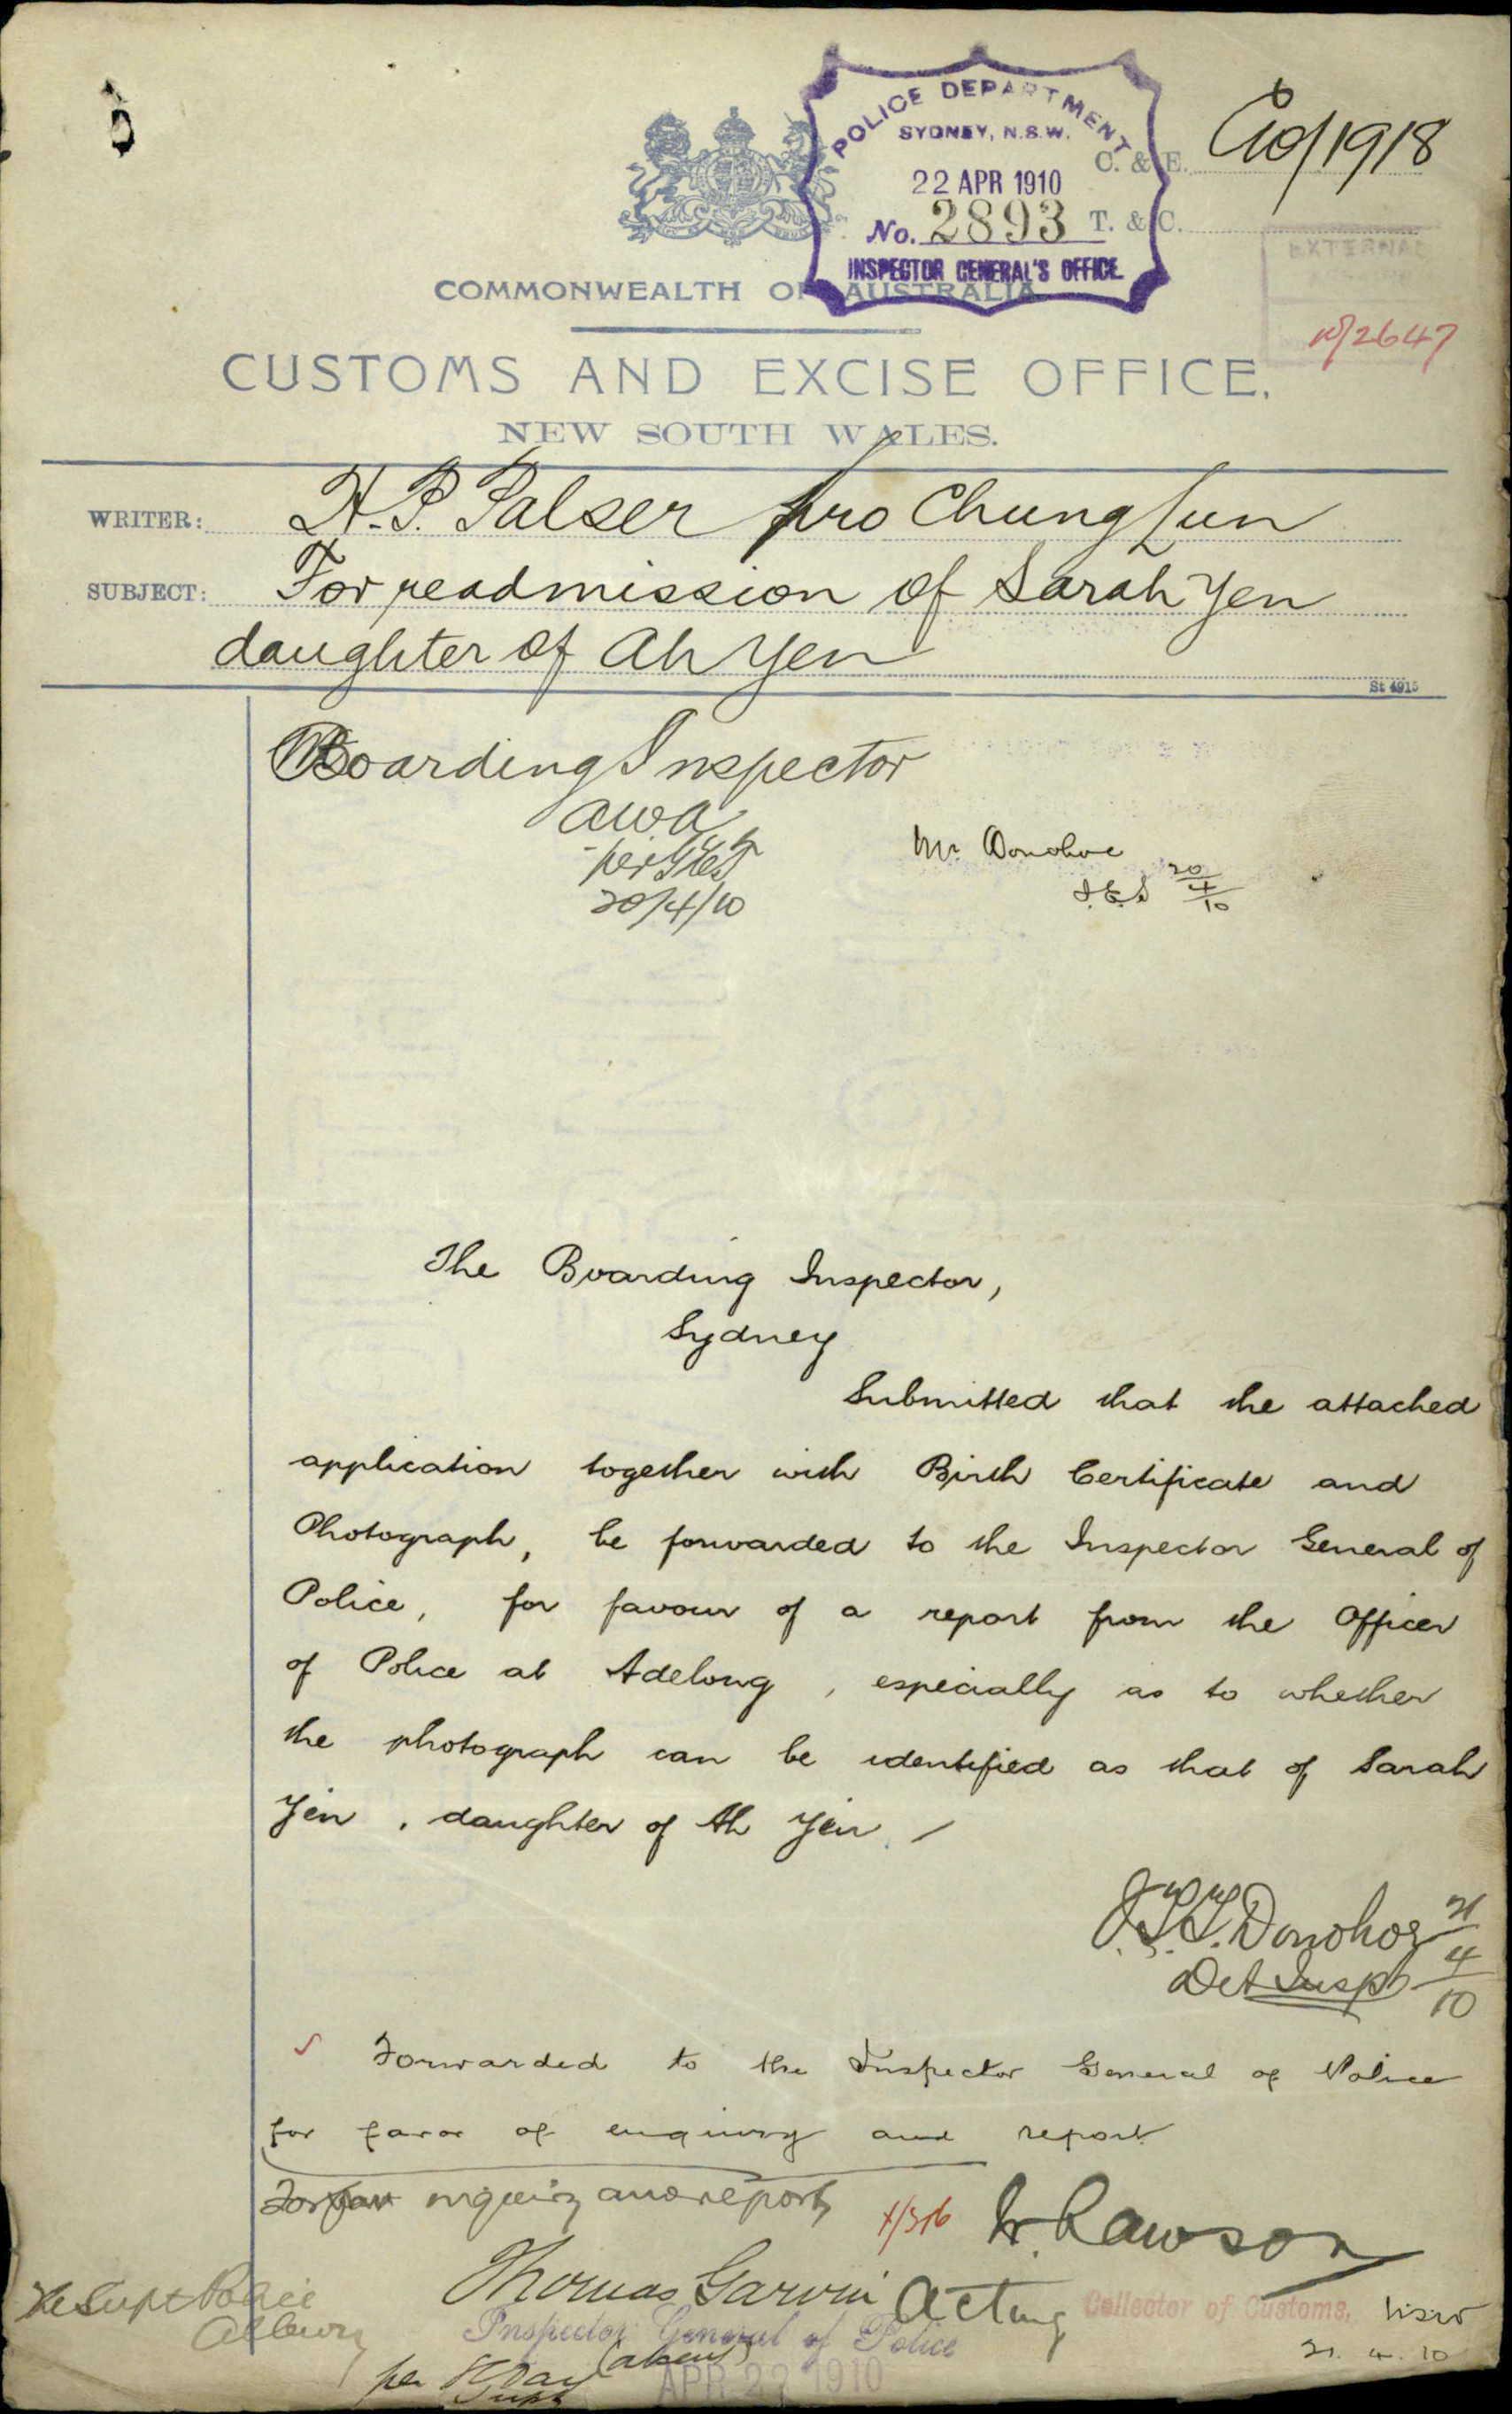 POLICE DEPARTMENT
SYDNEY, N.S.W.
22 APR 1910
No. 2893
INSPECTOR GENERAL'S OFFICE
C. & E. C10/1918
T. & C.
EXTERNAL
10/2647
COMMONWEALTH OF AUSTRALIA
CUSTOMS AND EXCISE OFFICE,
NEW SOUTH WALES.
WRITER: H. P. Palser pro Chung Lun
SUBJECT: For readmission of Sarah Yen
daughter of Ah Yen
St 4915
Boarding Inspector
awa
per
20/4/10
Mr. Donohoe
20/4/10
The Boarding Inspector,
Sydney
Submitted that the attached
application together with Birth Certificate and
Photograph, be forwarded to the Inspector General of
Police, for favour of a report from the Officer
of Police at Adelong, especially as to whether
the photograph can be identified as that of Sarah
Yen, daughter of Ah Yen. /
J.T.T. Donohoe 21/4/10
Det Inspr
Forwarded to the Inspector General of Police
for favor of enquiry and report
For fav inquiry and report
4/316
W. Lawson
Thomas Garvin
Acting Collector of Customs, NSW
21. 4. 10
Inspector General of Police
(absent)
The Supt Police
Albury
per Day
Supt
APR 22 1910